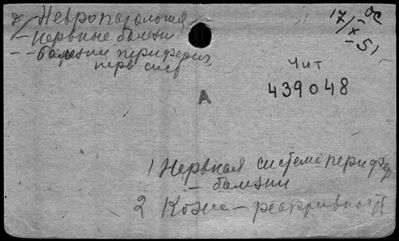 Невропатология
– нервные болезни
– болезни перифериз
нерв сист
17/X–51
ОС
Чит
439048
А
1 Нервная система перифер
– болезни
2 Кожа – реактивность